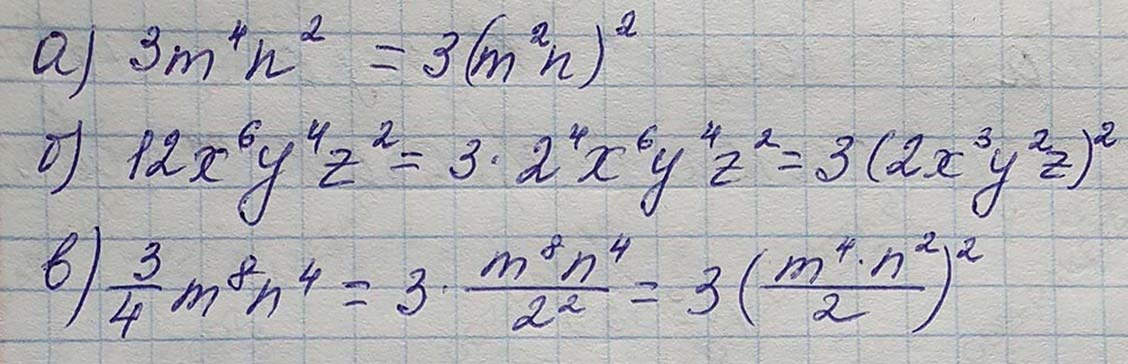 а) 3m⁴n² = 3(m²n)²
б) 12x⁶y⁴z² = 3·2⁴x⁶y⁴z² = 3(2x³y²z)²
в) 3/4 m⁸n⁴ = 3· m⁸n⁴/2² = 3(m⁴·n²/2)²